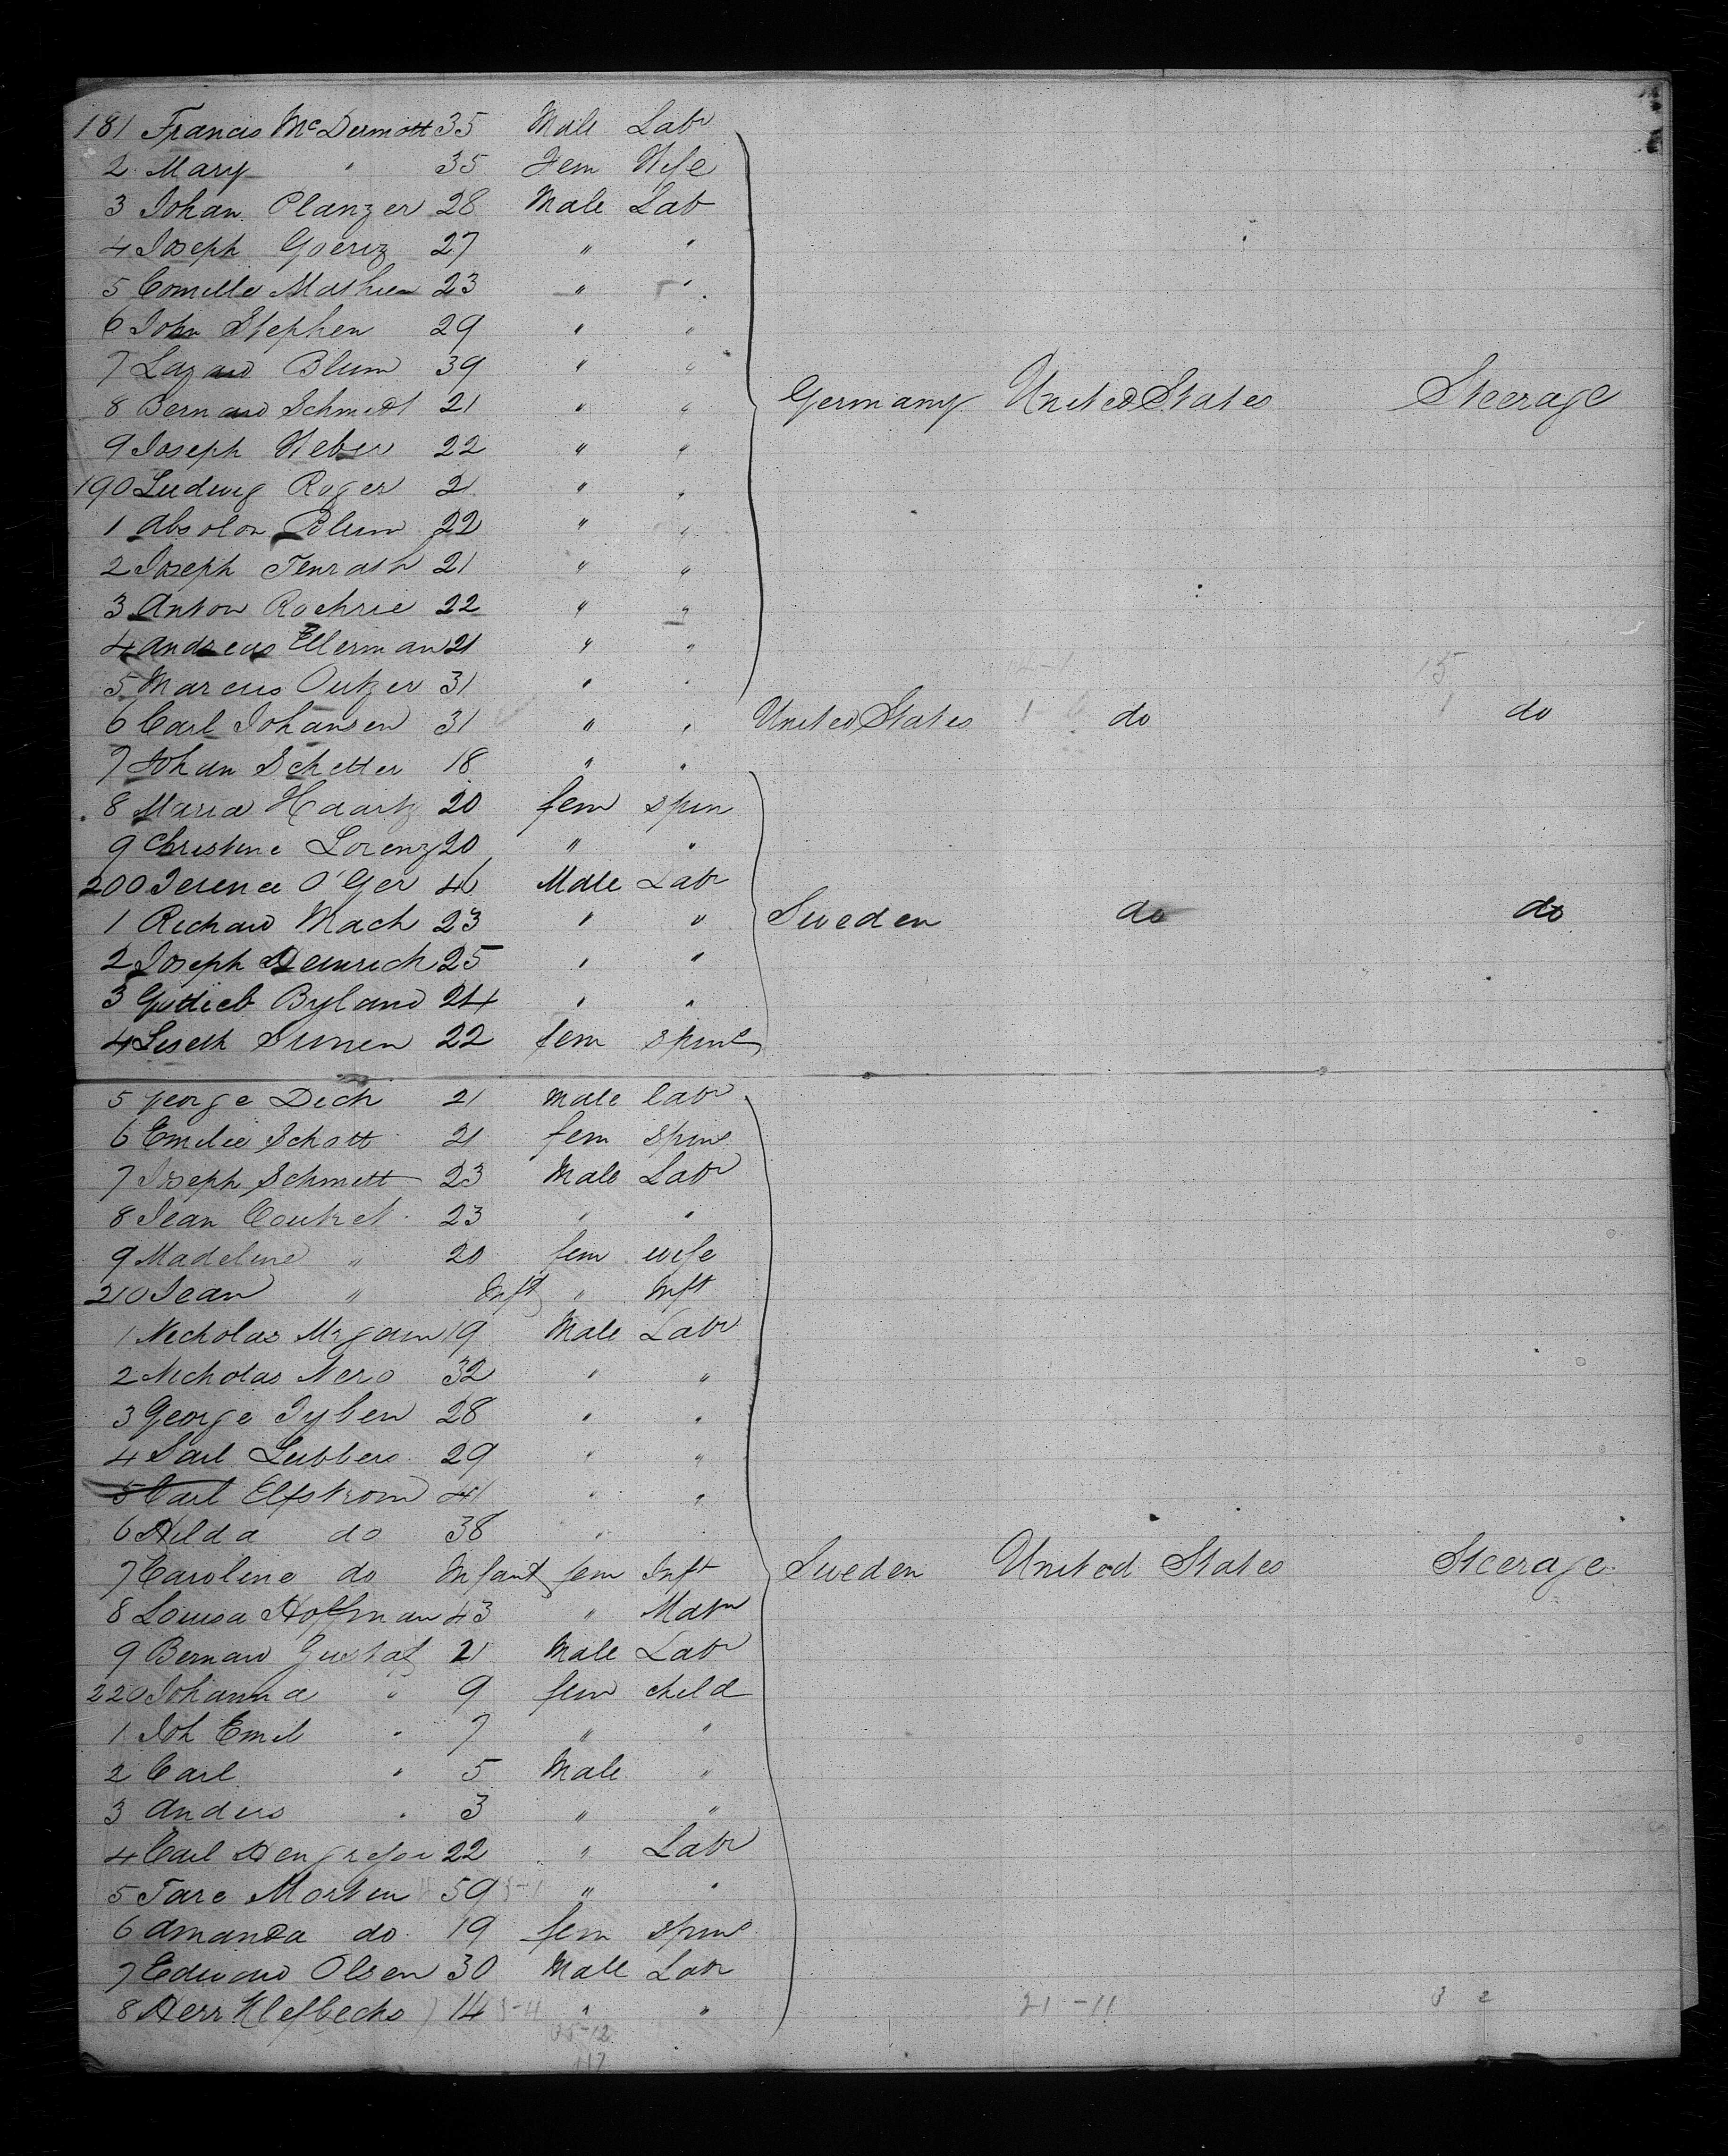 181 Francis McDermott 35 Male Labr
2 Mary " 35 Fem Wife
3 Johan Planzer 28 Male Lab
4 Joseph Goeriz 27 " "
5 Comille Mathieu 23 " "
6 John Stephen 29 " "
7 Lazard Blum 39 " "
8 Bernard Schmidt 21 " " Germany United States Steerage
9 Joseph Weber 22 " "
190 Ludwig Roger 21 " "
1 Absolon Blum 22 " "
2 Joseph Tenrath 21 " "
3 Anton Rochrie 22 " "
4 Andreas Ellerman 21 " "
5 Marcus Outzer 31 " "
6 Carl Johansen 31 " " United States do do
7 Johan Schetter 18 " "
8 Maria Haartz 20 fem spin
9 Christine Lorenz 20 " "
200 Terence O'Ger 46 Male Labr
1 Richard Mach 23 " " Sweden do do
2 Joseph Heinrich 25 " "
3 Gottlieb Byland 24 " "
4 Liseth Simen 22 fem spins
5 George Dech 21 Male labr
6 Emilie Schott 21 fem spins
7 Joseph Schmitt 23 Male Labr
8 Jean Coutret 23 " "
9 Madeline " 20 fem wife
210 Jean " Inft " Inft
1 Nicholas 19 Male Labr
2 Nicholas Nero 32 " "
3 George Tyben 28 " "
4 Carl Lubbers 29 " "
5 Carl Elfstrom 41 " "
6 Hilda do 38 "
7 Caroline do Infant fem Inft Sweden United States Steerage
8 Louisa Hoffman 43 " Matn
9 Bernard Gustaf 21 Male Labr
220 Johanna " 9 fem child
1 Joh Emil " 7 " "
2 Carl " 5 Male "
3 Anders " 3 " "
4 Carl 22 " Labr
5 Tare Morten 59 " "
6 Amanda do 19 fem spins
7 Edward Olsen 30 Male Labr
8 Herr Klefbecks 14 " " 21-11